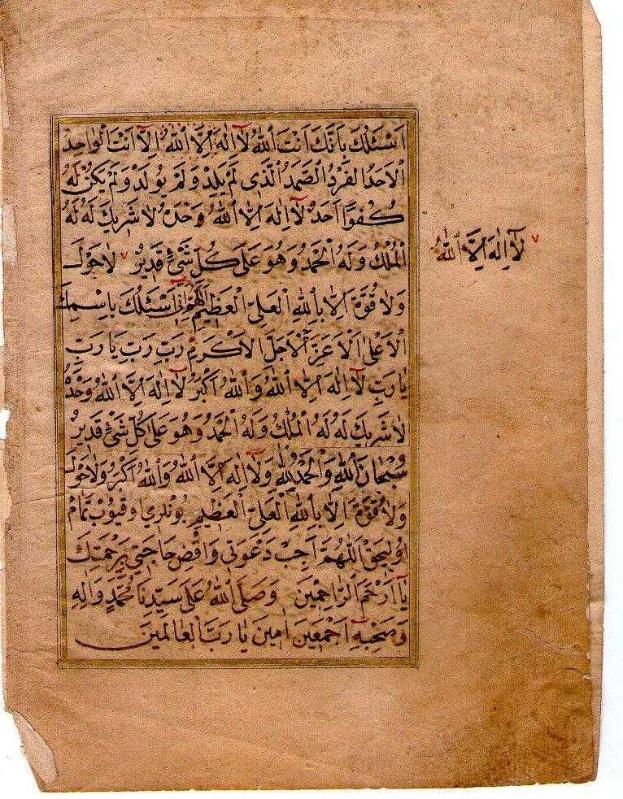 اَسْئَلُكَ بِاَنَّكَ اَنْتَ اللهُ لَا اِلٰهَ اِلَّا اللهُ اِلَّا اَنْتَ الْوَاحِدُ
الْاَحَدُ الْفَرْدُ الصَّمَدُ الَّذِى لَمْ يَلِدْ وَلَمْ يُولَدْ وَلَمْ يَكُنْ لَهُ
كُفُوًا اَحَدٌ لَا اِلٰهَ اِلَّا اللهُ وَحْدَهُ لَا شَرِيكَ لَهُ لَهُ
الْمُلْكُ وَلَهُ الْحَمْدُ وَهُوَ عَلَى كُلِّ شَىْءٍ قَدِيرٌ لَا حَوْلَ
لَا اِلٰهَ اِلَّا اللهُ
وَلَا قُوَّةَ اِلَّا بِاللهِ الْعَلِىِّ الْعَظِيمِ اَللّٰهُمَّ اِنِّى اَسْئَلُكَ بِاسْمِكَ
الْاَعْلَى الْاَعَزِّ الْاَجَلِّ الْاَكْرَمِ رَبِّ رَبِّ يَا رَبِّ
يَا رَبِّ لَا اِلٰهَ اِلَّا اللهُ وَاللهُ اَكْبَرُ لَا اِلٰهَ اِلَّا اللهُ وَحْدَهُ
لَا شَرِيكَ لَهُ لَهُ الْمُلْكُ وَلَهُ الْحَمْدُ وَهُوَ عَلَى كُلِّ شَىْءٍ قَدِيرٌ
سُبْحَانَ اللهِ وَالْحَمْدُ لِلّٰهِ وَلَا اِلٰهَ اِلَّا اللهُ وَاللهُ اَكْبَرُ وَلَا حَوْلَ
وَلَا قُوَّةَ اِلَّا بِاللهِ الْعَلِىِّ الْعَظِيمِ بونلرى اوقيوب تمام
اَللّٰهُمَّ اَجِبْ دَعْوَتِى وَاقْضِ حَاجَتِى بِرَحْمَتِكَ
يَا اَرْحَمَ الرَّاحِمِينَ وَصَلَّى اللهُ عَلَى سَيِّدِنَا مُحَمَّدٍ وَاٰلِهِ
وَصَحْبِهِ اَجْمَعِينَ اٰمِينَ يَا رَبَّ الْعَالَمِينَ